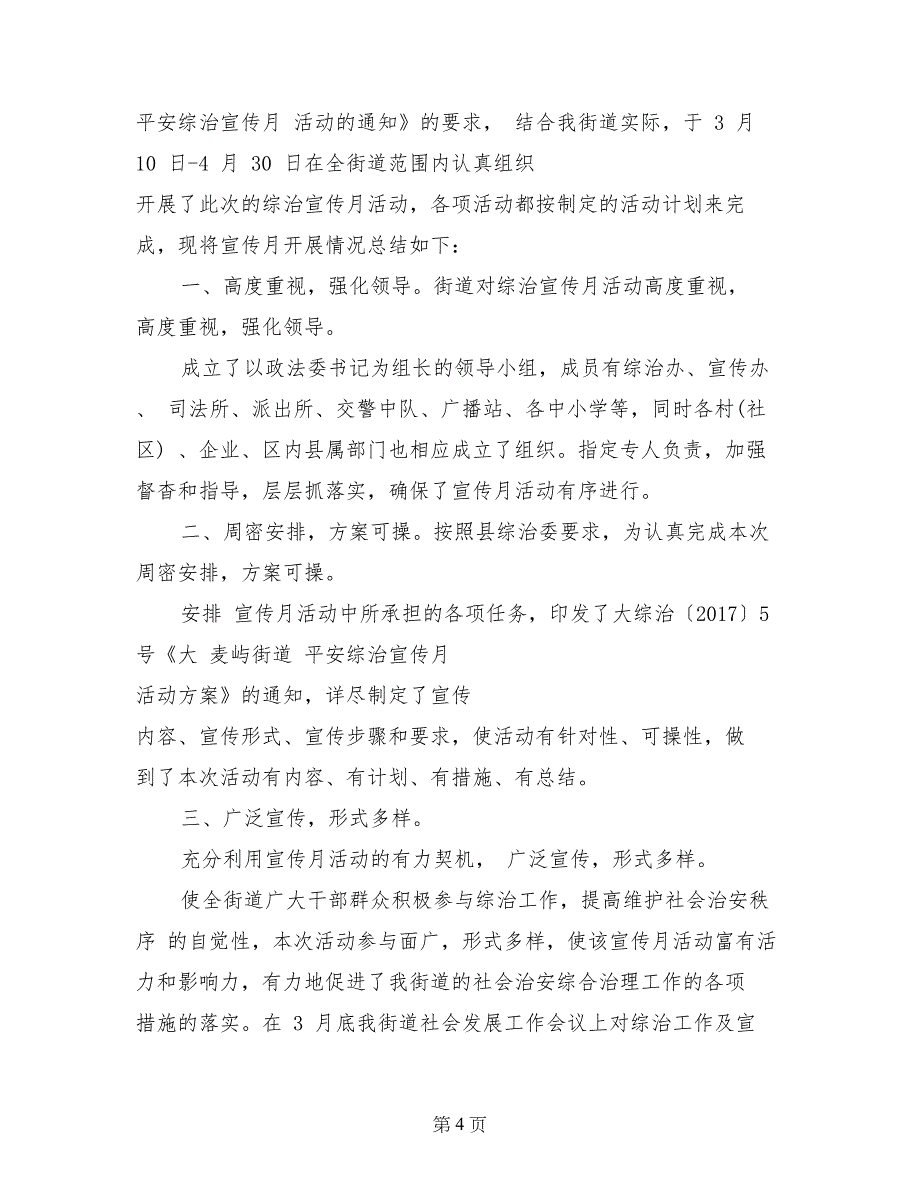 平安综治宣传月 活动的通知》的要求， 结合我街道实际，于 3 月
10 日-4 月 30 日在全街道范围内认真组织
开展了此次的综治宣传月活动，各项活动都按制定的活动计划来完
成，现将宣传月开展情况总结如下：
一、高度重视，强化领导。街道对综治宣传月活动高度重视，
高度重视，强化领导。
成立了以政法委书记为组长的领导小组，成员有综治办、宣传办
、 司法所、派出所、交警中队、广播站、各中小学等，同时各村(社
区) 、企业、区内县属部门也相应成立了组织。指定专人负责，加强
督杳和指导，层层抓落实，确保了宣传月活动有序进行。
二、周密安排，方案可操。按照县综治委要求，为认真完成本次
周密安排，方案可操。
安排 宣传月活动中所承担的各项任务，印发了大综治〔2017〕5
号《大 麦屿街道 平安综治宣传月
活动方案》的通知，详尽制定了宣传
内容、宣传形式、宣传步骤和要求，使活动有针对性、可操性，做
到了本次活动有内容、有计划、有措施、有总结。
三、广泛宣传，形式多样。
充分利用宣传月活动的有力契机， 广泛宣传，形式多样。
使全街道广大干部群众积极参与综治工作，提高维护社会治安秩
序 的自觉性，本次活动参与面广，形式多样，使该宣传月活动富有活
力和影响力，有力地促进了我街道的社会治安综合治理工作的各项
措施的落实。在 3 月底我街道社会发展工作会议上对综治工作及宣
第 4 页